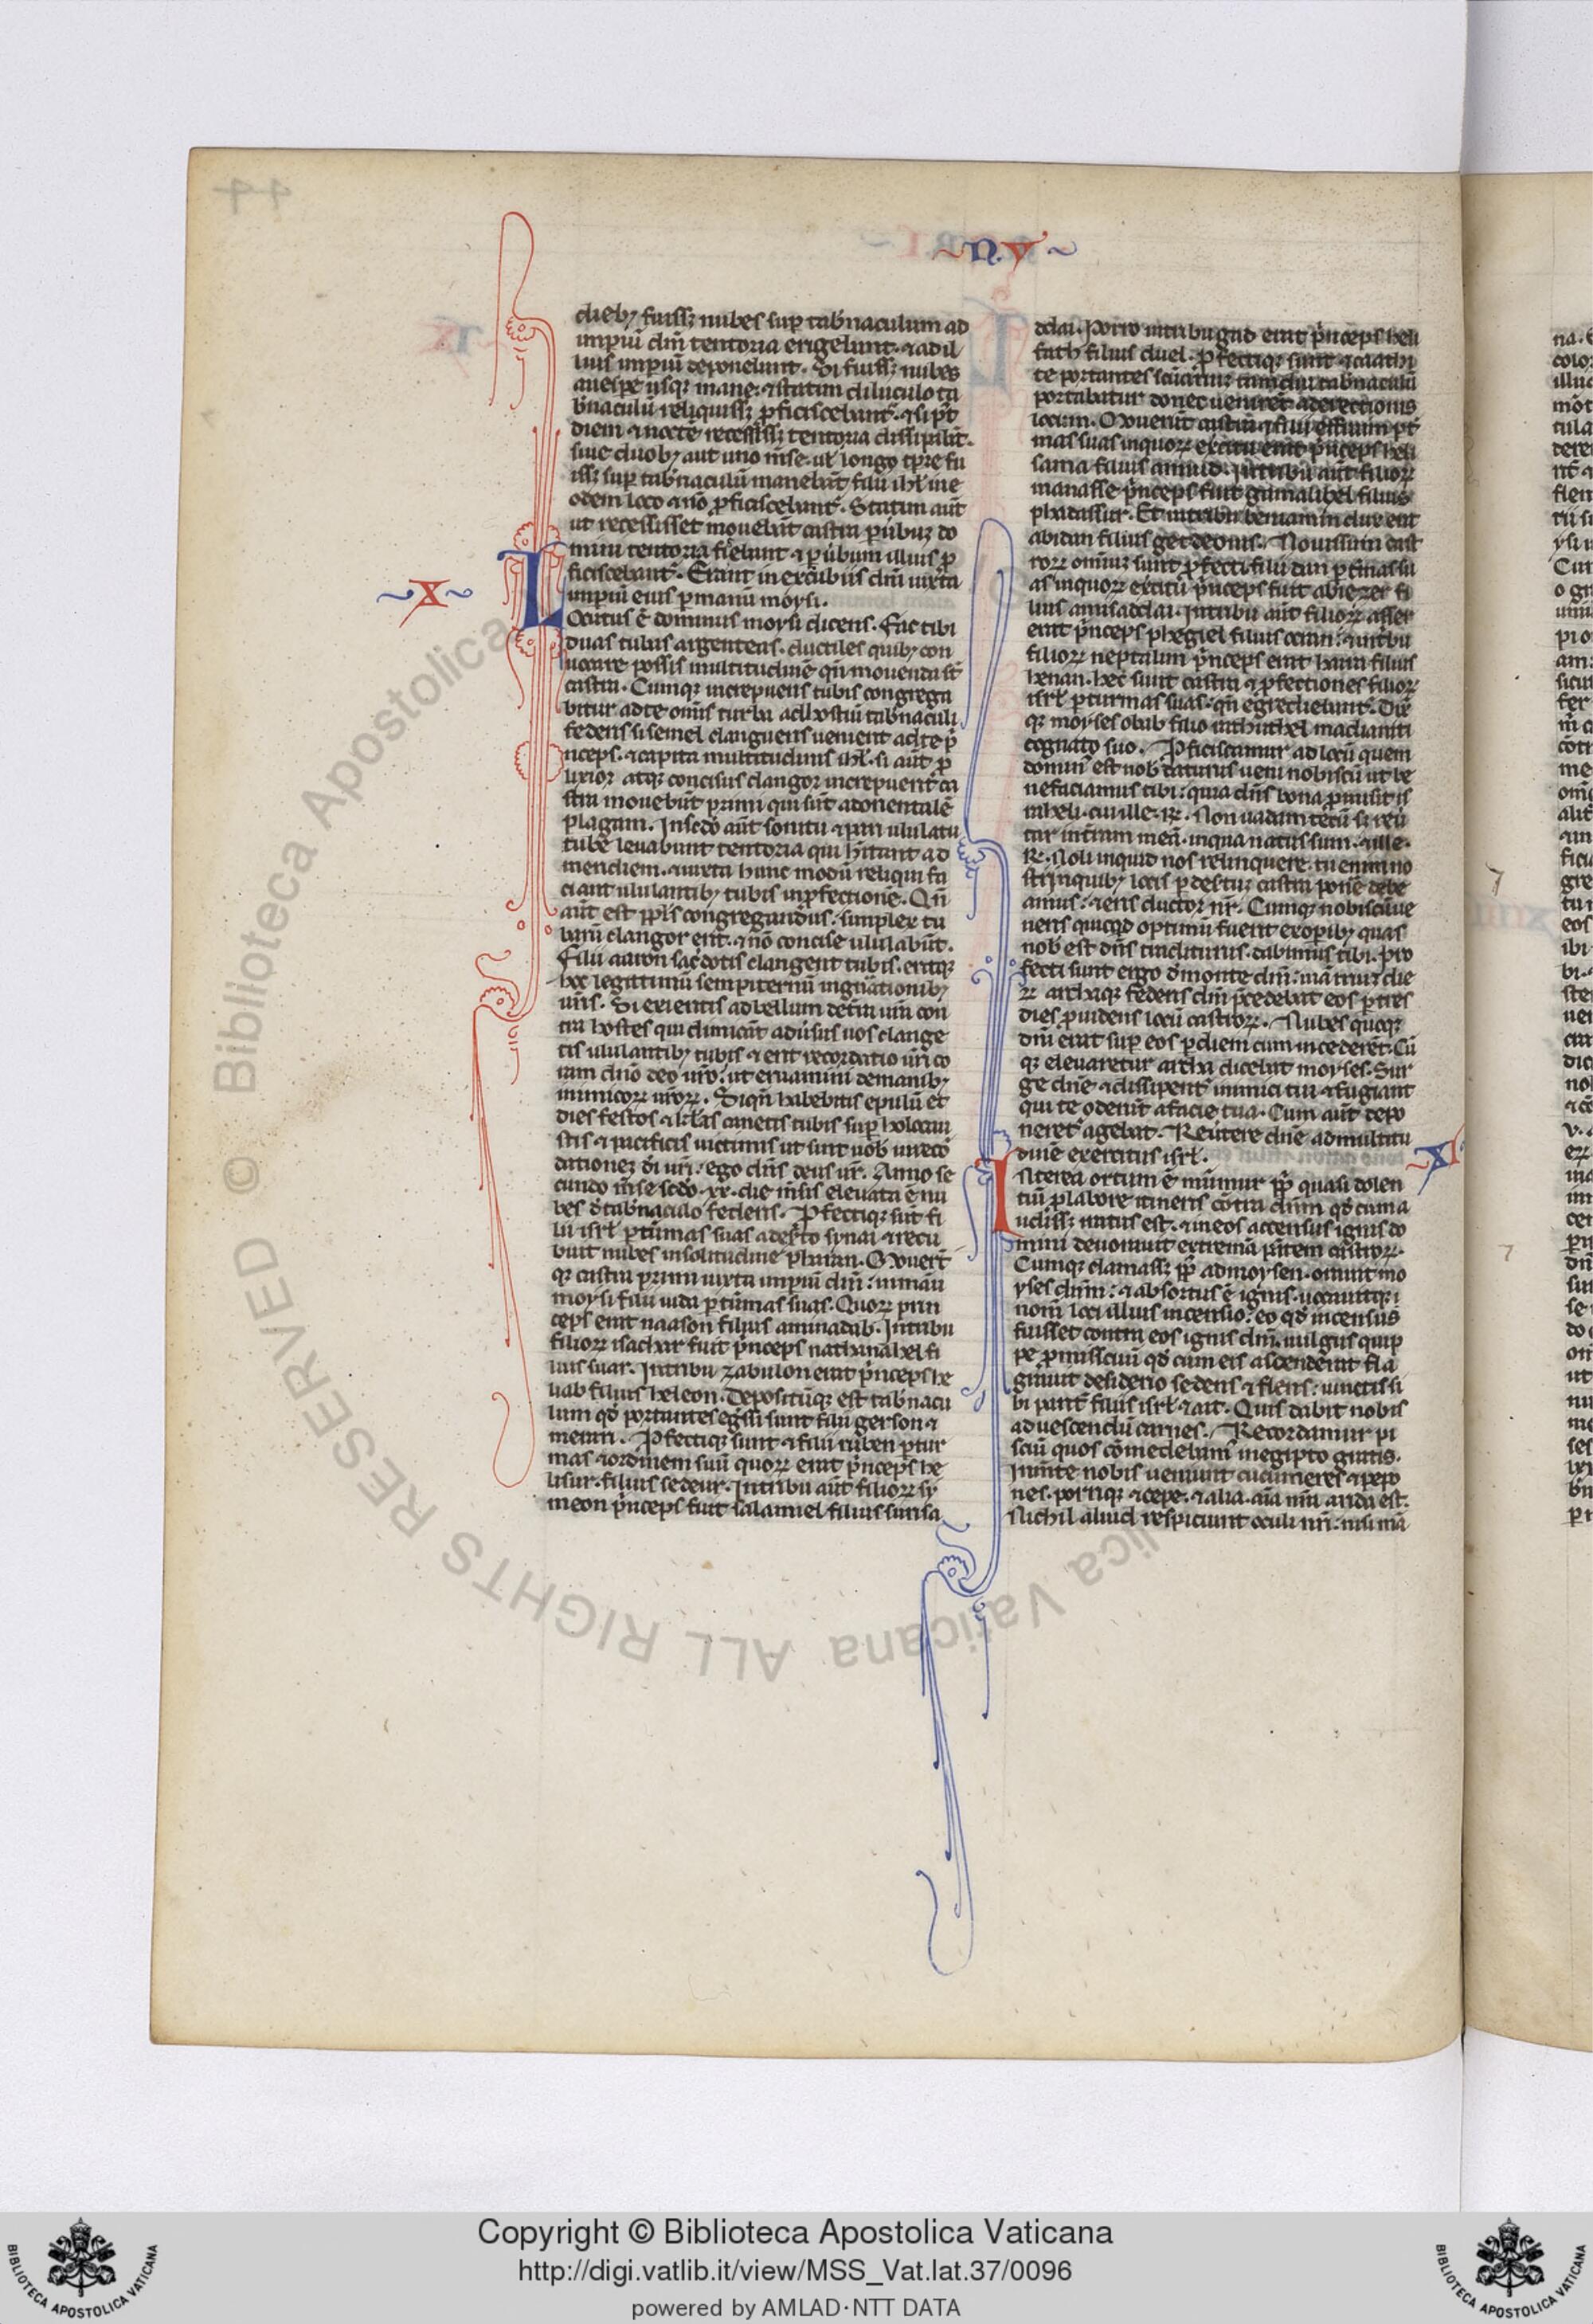 N.V
dieb; fuiss; nubes sup tab'naculum ad
imp̄iū dn̄i tentoria erigebant. ⁊ ad il
lius imp̄iū deponebant. Si fuiss; nubes
a uesp̄e usq; mane: ⁊ statim diluculo ta
b'naculū reliquiss; ꝓficiscebant'. ⁊ si p't
diem ⁊ noctē recessiss; tentoria dissipabāt.
siue duob; aut uno m̄se. ul' longo tp̄re fu
iss; sup tab'naculū manebāt filii isrl' in e
odem loco ⁊ nō ꝓficiscebant'. Statim aūt
ut recessisset mouebāt castra
mini tentoria
ficiscebant'. Erant in excubiis dn̄i iuxta
imp̄iū eius p manū moysi.
X
Locutus ē dominus moysi dicens. Fac tibi
duas tubas argenteas. ductiles quib; con
uocare possis multitudinē qn̄ mouenda st̄
castra. Cumq; increpueris tubis congrega
bitur ad te omīs turba ad hostiū tab'naculi
federis. si semel clangueris uenient ad te p'i
ncipes. ⁊ capita multitudinis isrl'. si aūt ꝓ
lixior atq; concisus clangor increpuerit ca
stra mouebūt primi qui sūt ad orientalē
plagam. In sc̄do aūt sonitu ⁊ pari ululatu
tube leuabunt tentoria qui h'itant ad
meridiem. ⁊ iuxta hunc modū reliqui fa
ciant ululantib; tubis in ꝓfectionē. Qn̄
aūt est ppl's congregandus. simplex tu
barū clangor erit. ⁊ nō concise ululabūt.
Filii aaron sac'dotis clangent tubis. eritq;
hoc legittimū sempiternū in gn̄ationib;
ur̄is. Si exieritis ad bellum de t'ra ur̄a con
tra hostes qui dimicāt aduersus uos clange
tis ululantib; tubis ⁊ erit recordatio ur̄i co
ram dn̄o deo ur̄o. ut eruamini de manib;
inimicoꝝ ur̄oꝝ. Si qn̄ habebitis epulū et
dies festos ⁊ kl'as canetis tubis sup holocau
stis ⁊ pacificis uictimis ut sint uob in reco
dationez di ur̄i. ego dn̄s deus ur̄. Anno se
cundo m̄se sc̄do. xx. die m̄sis eleuata ē nu
bes d' tab'naculo federis. Ꝓfectiq; sūt fi
lii isrl' p turmas suas a des'to synai ⁊ recu
buit nubes in solitudine pharan. Mouer̄t
q; castra primi iuxta imp̄iū dn̄i: in manu
moysi filii iuda p turmas suas. Quoꝝ prin
ceps erat naason filius aminadab. In tribu
filioꝝ isachar fuit p'nceps nathanahel fi
lius suar. In tribu zabulon erat p'nceps he
liab filius heleon. Depositūq; est tab'nacu
lum qd' portantes eg'ssi sunt filii gerson ⁊
merari. Ꝓfectiq; sunt ⁊ filii ruben p tur
mas ⁊ ordinem suū quoꝝ erat p'nceps he
lisur. filius sedeur. In tribu aūt filioꝝ sy
meon p'nceps fuit salamiel filius surisa
ddai. Porro in tribu gad erat p'nceps heli
sath filius duel. Ꝓfectiq; sunt ⁊ caathi
te portantes sc̄uarium tam diu tab'naculū
portabatur donec uenirēt ad erectionis
locum. Mouerūt castra ⁊ filii effraim p t'
mas suas in quoꝝ exc̄itu erat p'nceps heli
sama filius amiud. In tribu aūt filioꝝ
manasse p'nceps fuit gamalihel filius
phadassur. Et in tribu beniamin dux erat
abidan filius gedeonis. Nouissimi cast
roꝝ omniuz sunt ꝓfecti filii dan p t'mas su
as in quoꝝ exc̄itu p'nceps fuit ahiezer fi
lius amisaddai. In tribu aūt filioꝝ asser
erat p'nceps phegiel filius ocran. ⁊ in tribu
filioꝝ neptalim p'nceps erat haira filius
henan. hec sunt castra ⁊ ꝓfectiones filioꝝ
isrl' p turmas suas. qn̄ egrediebant'. Dix̄
q; moyses obab filio rathuhel madianiti
cognato suo. Ꝓficiscamur ad locū quem
domin' est nob daturus ueni nobiscū ut be
nefaciamus tibi: quia dn̄s bona ꝓmisit is
raheli. cui ille. R. Non uadam tecū s; reu'
tar in t'ram meā. in qua natus sum. ⁊ ille.
R. Noli inquid nos relinquere. tu enim no
sti in quib; locis p desertuz castra ponē debe
amus: ⁊ eris ductor nr̄. Cumq; nobiscū ue
neris quicqd optimū fuerit ex opib; quas
nob est dn̄s traditurus. dabimus tibi. Pro
fecti sunt ergo d' monte dn̄i: uiā trium die
ꝝ archaq; federis dn̄i p̄cedebat eos p tres
dies ꝓuidens locū castroꝝ. Nubes quoq;
dn̄i erat sup eos p diem cum incederēt. Cū
q; eleuaretur archa dicebat moyses. Sur
ge dn̄e ⁊ dissipent' inimici tui ⁊ fugiant
qui te oderūt a facie tua. Cum aūt depo
neret' agebat. Reu'tere dn̄e ad multitu
dinē exercitus isrl'.
XI
Interea ortum ē murmur ppl'i quasi dolen
tiū p labore itineris cōtra dn̄m qd' cum a
udiss; iratus est. ⁊ in eos accensus ignis do
mini deuorauit extremā partem castroꝝ.
Cumq; clamass; ppl's ad moysen. orauit mo
yses dn̄m: ⁊ absortus ē ignis. uocauitq;
nom̄ loci illius incensio: eo qd' incensus
fuisset contra eos ignis dn̄i. uulgus quip
pe ꝓmiscuū qd' cum eis ascenderat fla
grauit desiderio sedens ⁊ flens: iunctis si
bi parit' filiis isrl' ⁊ ait. Quis dabit nobis
ad uescendū carnes. Recordamur pi
sciū quos cōmedebam' in egipto gratis.
In m̄te nobis ueniunt cucumeres ⁊ pepo
nes. porriq; ⁊ cepe. ⁊ alia. aīa nr̄a arida est.
Nichil aliud respiciunt oculi nr̄i: nisi mā
© Biblioteca Apostolica Vaticana ALL RIGHTS RESERVED
Copyright © Biblioteca Apostolica Vaticana
http://digi.vatlib.it/view/MSS_Vat.lat.37/0096
powered by AMLAD·NTT DATA
BIBLIOTECA APOSTOLICA VATICANA
BIBLIOTECA APOSTOLICA VATICANA